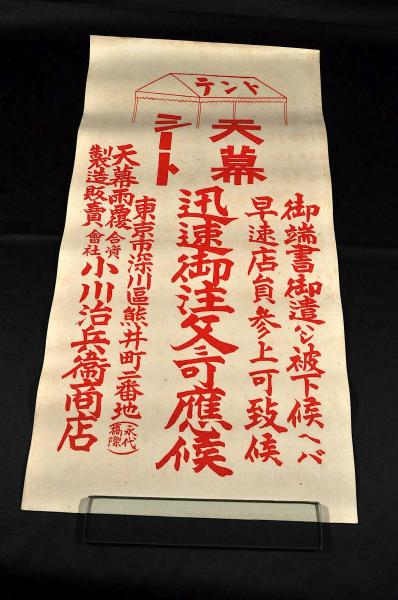 テント
天幕
シート
御端書御遣ハシ被下候ヘバ
早速店員参上可致候
迅速御注文ニ可應候
東京市深川區熊井町二番地（永代橋際）
天幕雨覆製造販賣
合資會社小川治兵衞商店